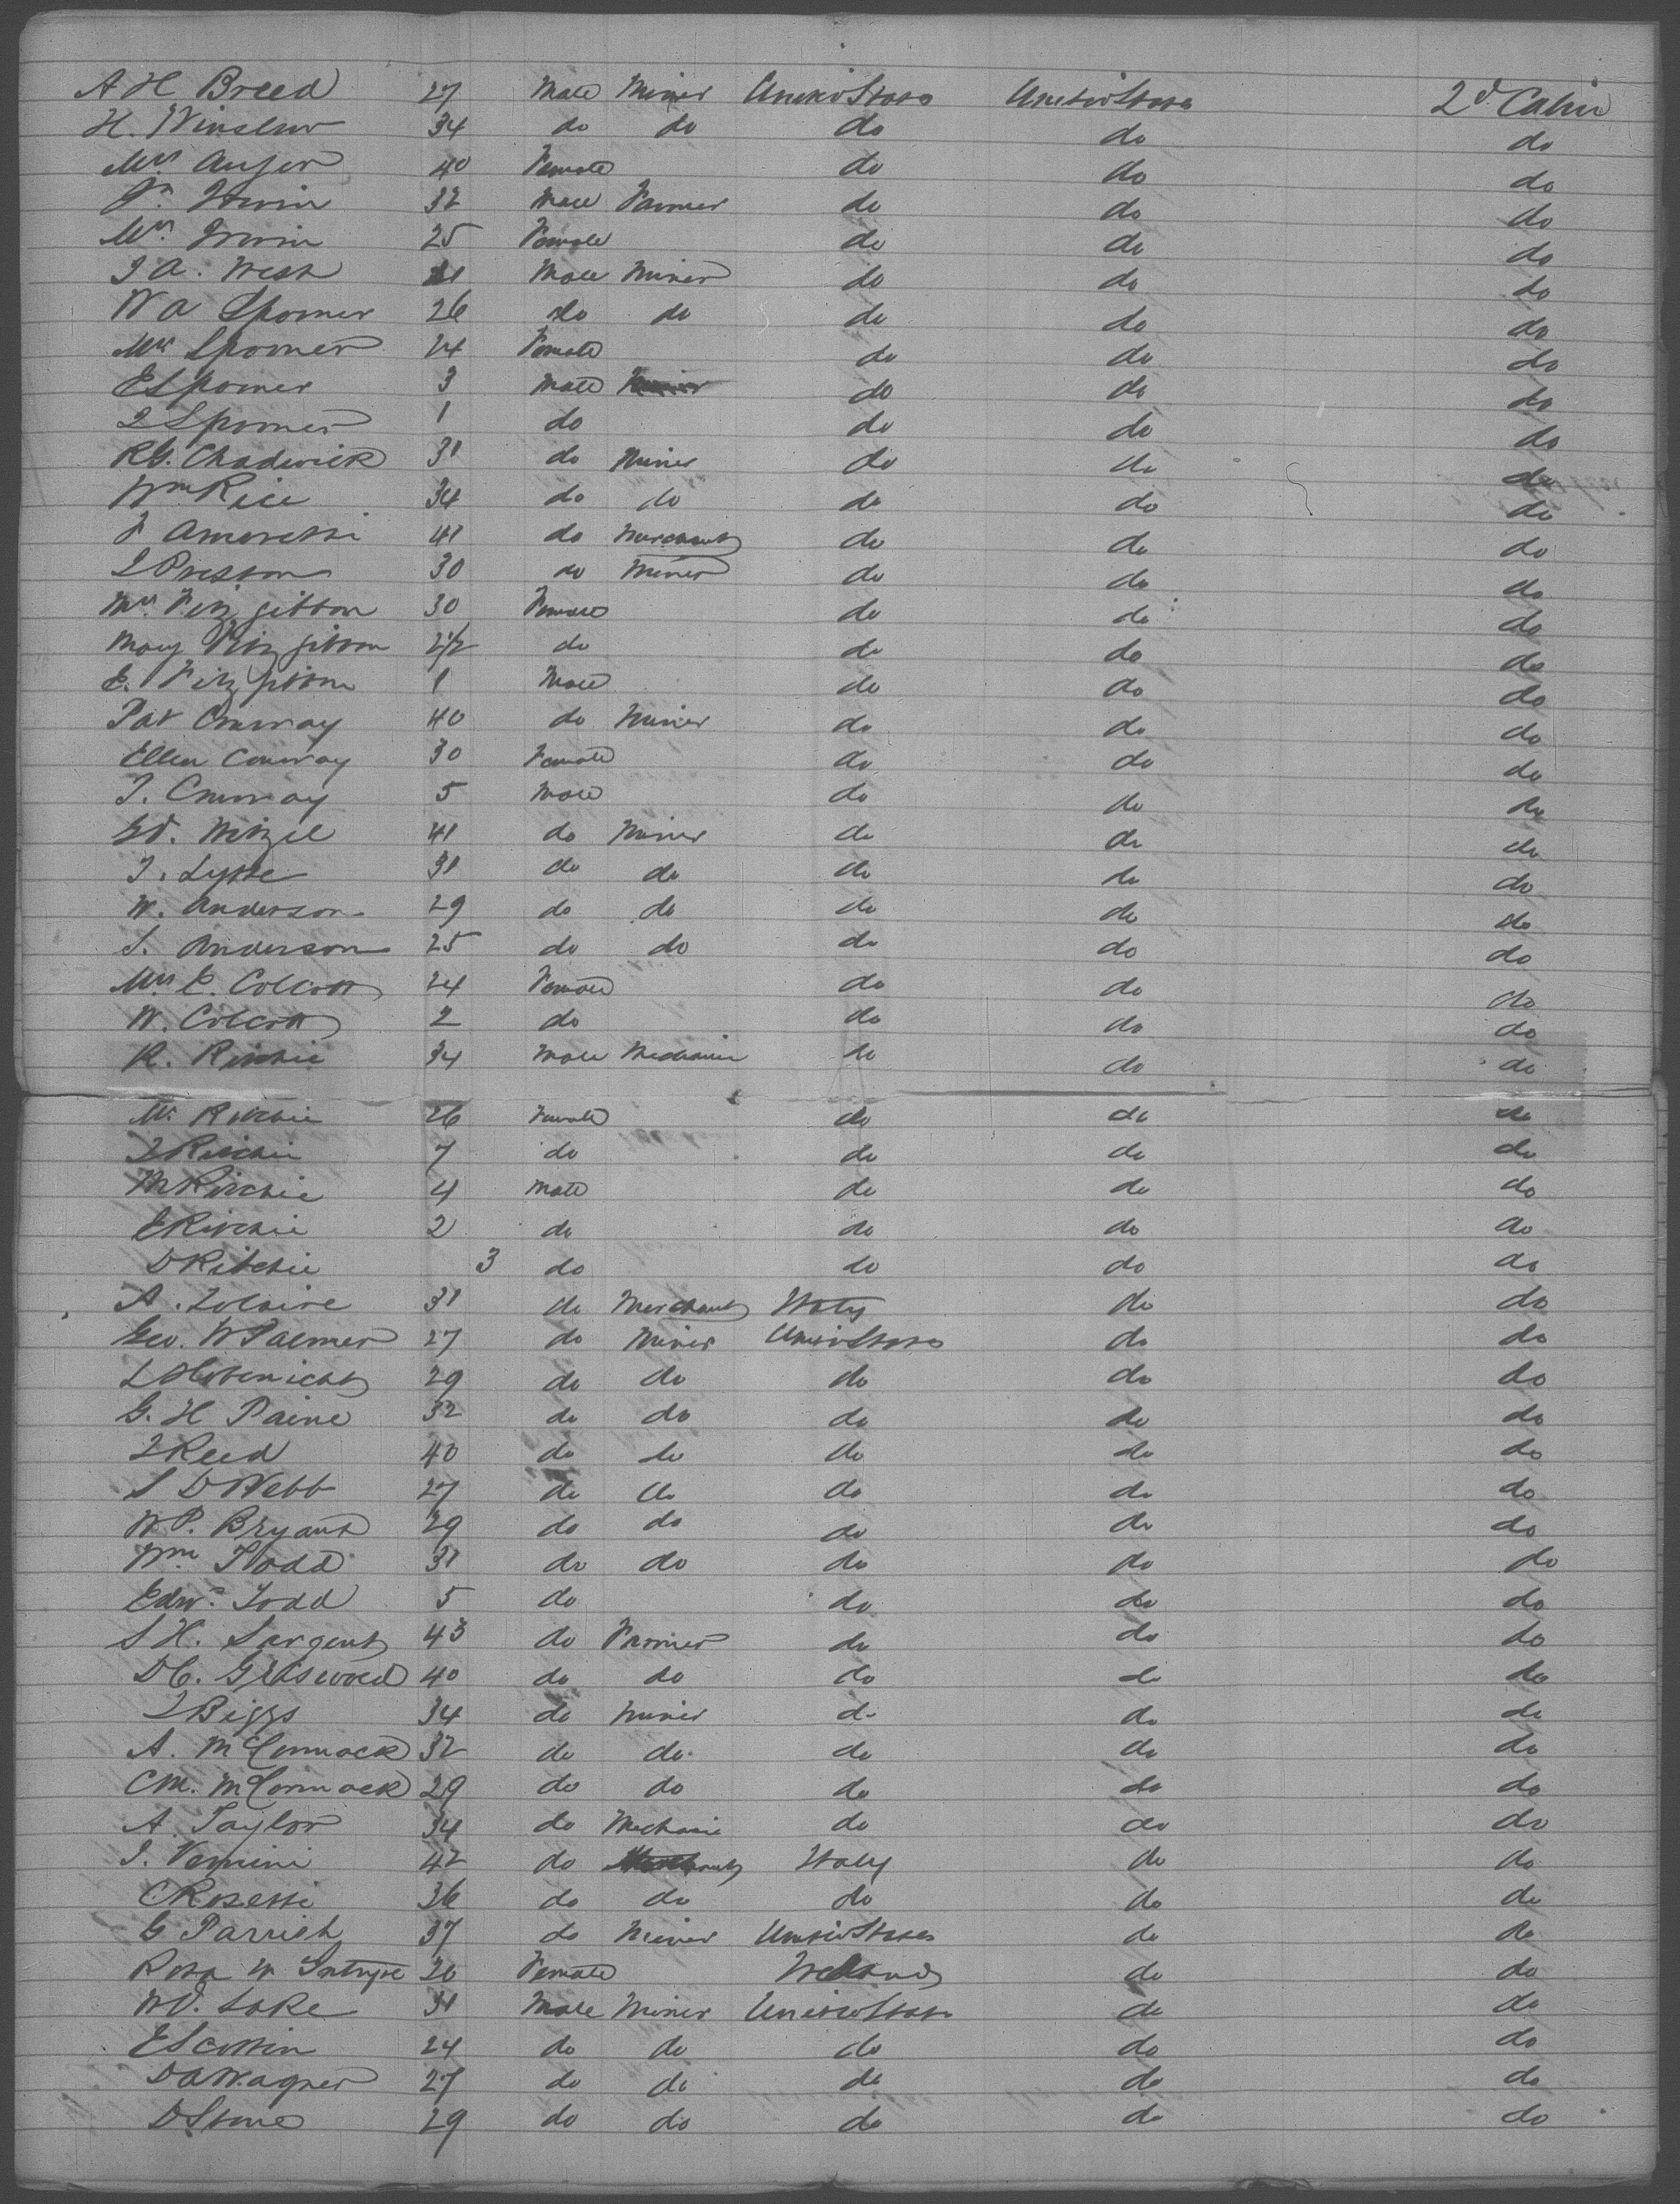 A H Breed 27 Male Miner United States United States 2d Cabin
H. Winslow 34 do do do do do
Mrs Auger 40 Female do do do
Irwin 32 Male Farmer do do do
Mrs Irwin 25 Female do do do
J A. West Male Miner do do do
W A Spooner 26 do do do do do
Mrs Spooner 24 Female do do do
E Spooner 3 Male do do do
J Spooner 1 do do do do
R G. Chadwick 31 do Miner do do do
Wm Rice 34 do do do do do
F Amoretti 41 do Merchant do do do
J Preston 30 do Miner do do do
Mrs Fitzgibbon 30 Female do do do
Mary Fitzgibbon 2 1/2 do do do do
E. Fitzgibbon 1 Male do do do
Pat Conway 40 do Miner do do do
Ellen Conway 30 Female do do do
J. Conway 5 Male do do do
41 do Miner do do do
J. 31 do do do do do
W. Anderson 29 do do do do do
S. Anderson 25 do do do do do
Mrs C. Colcott 24 Female do do do
W. Colcott 2 do do do do
R. Ritchie 34 Male Mechanic do do do
Mrs Ritchie 26 Female do do do
J Ritchie 7 do do do do
M Ritchie 4 Male do do do
E Ritchie 2 do do do do
D Ritchie 3 do do do do
A. Solaire 31 do Merchant Italy do do
Geo. W Palmer 27 do Miner United States do do
29 do do do do do
G. H Paine 32 do do do do do
J Reed 40 do do do do do
S D Webb 27 do do do do do
W P. Bryant 29 do do do do do
Wm Todd 31 do do do do do
Edw. Todd 5 do do do do
S H. Sargent 43 do Farmer do do do
D C. Griswold 40 do do do do do
J Biggs 34 do Miner do do do
A. McCormack 32 do do do do do
C M. McCormack 29 do do do do do
A. Taylor 34 do Mechanic do do do
J. Vernini 42 do Merchant Italy do do
C Rosetti 36 do do do do do
G Parrish 37 do Miner United States do do
Rosa Mc Intyre 26 Female Ireland do do
W D. Lake 31 Male Miner United States do do
E Scottin 24 do do do do do
D A Wagner 27 do do do do do
D Stone 29 do do do do do